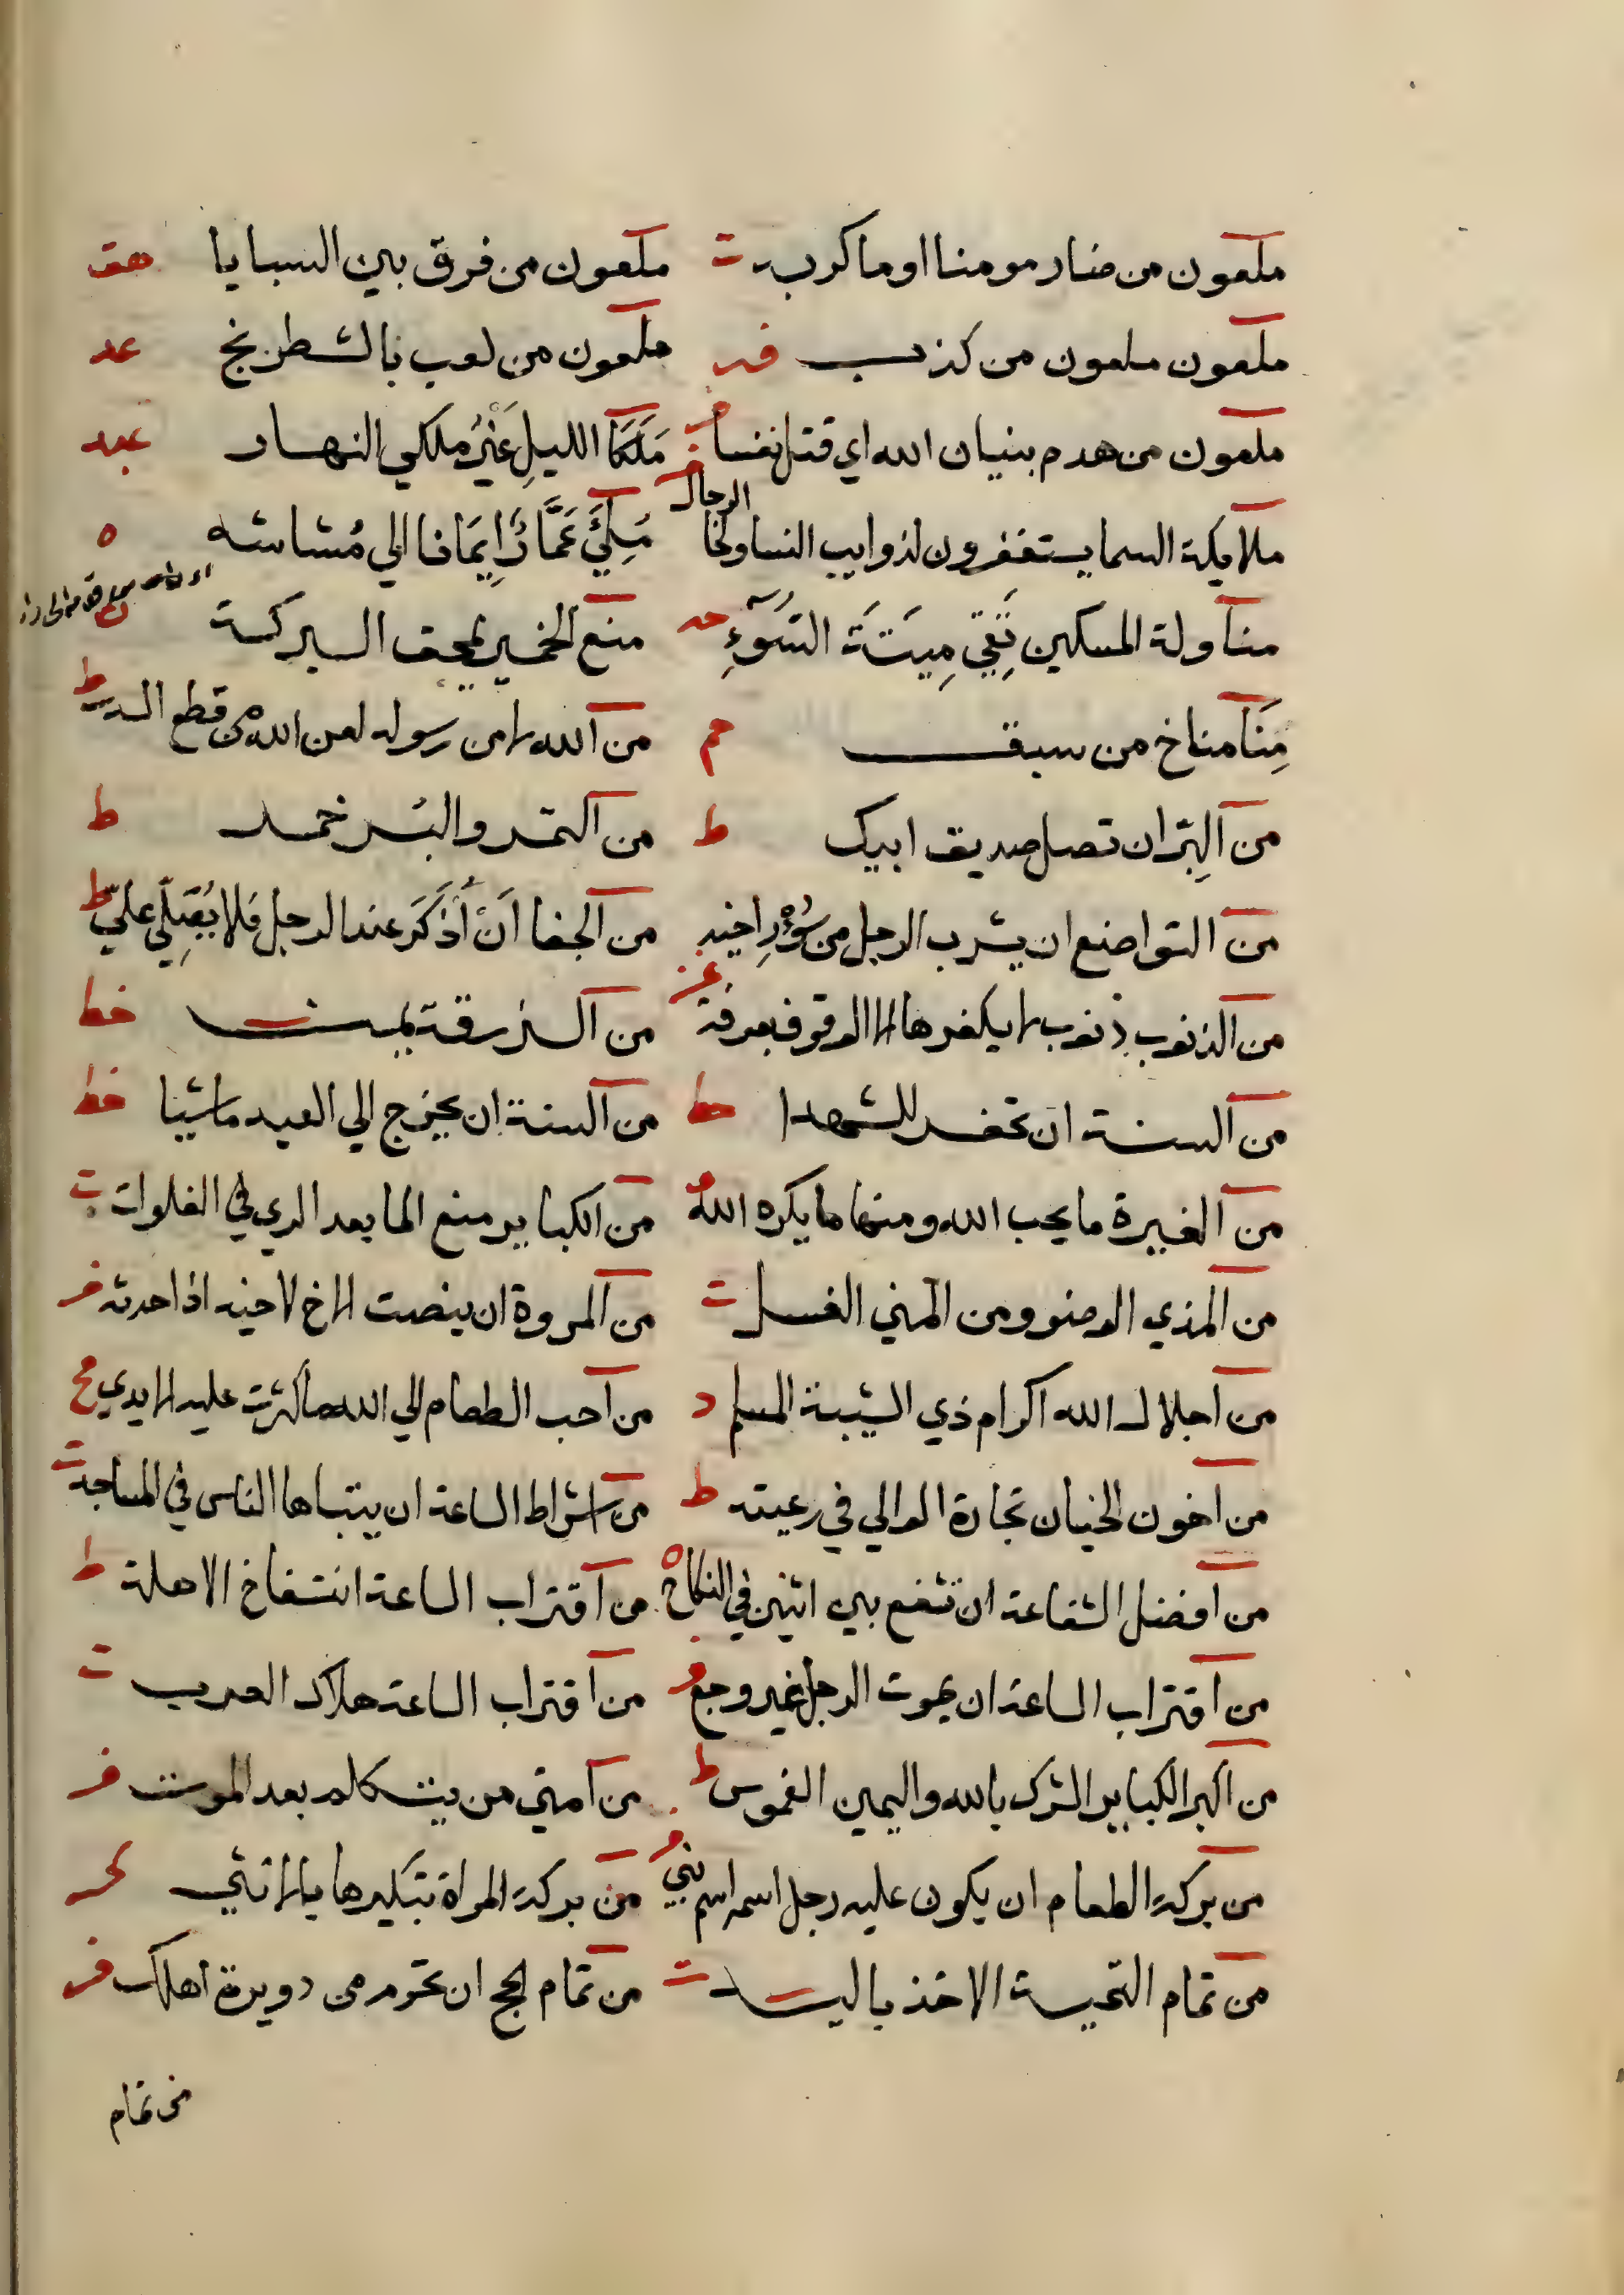 ملعون من ضار مومنا او ماكر به ت ملعون من فرق بين السبايا هق
ملعون ملعون من كذب فر ملعون من لعب بالشطرنج عد
ملعون من هدم بنيان الله اي قتل نفسا مَلَكَا الليلِ غَيْرُ ملكي النهار
ملايكة السما يستغفرون لذوايب النسا ولحا الرجال مُلِئَ عَمَّارٌ اِيمَانا الي مُشاشه ه
مناولة المسكين تَقِي مِيتَةَ السُّوءِ منع الخمير يمحق البركة
مِنَا مناخ من سبق حم من الله لا من رسوله لعن الله من قطع السدر ط
من البِرّ ان تصل صديق ابيك ط من التمر والبُسر خمر ط
من التواضع ان يشرب الرجل من سُؤْرِ اخيه من الجفا اَنْ أُذْكَرَ عند الرجل فلا يُصَلّي عليّ ط
من الذنوب ذنوب لا يكفرها الا الوقوف بعرفة من الزرقة يمن خط
من السنة ان تحفر للشهدا خط من السنة ان يخرج الي العيد ماشيا خط
من الغيرة ما يحب الله ومنها ما يكره الله من الكباير منع الما بعد الري في الفلوات ت
من المذي الوضو ومن المني الغسل ت من المروة ان ينصت الاخ لاخيه اذا حدثه فر
من اجلال الله اكرام ذي الشيبة المسلم د من احب الطعام الي الله ما كثرت عليه الايدي
من اخون الخيان تجارة الوالي في رعيته ط من اشراط الساعة ان يتباها الناس في المساجد ت
من افضل الشفاعة ان تشفع بين اثنين في النكاح ه من اقتراب الساعة انتفاخ الاهلة ط
من اقتراب الساعة ان يموت الرجل بغير وجع من اقتراب الساعة هلاك العرب ت
من اكبر الكباير الشرك بالله واليمين الغموس ط من امتي من يتكلم بعد الموت فر
من بركة الطعام ان يكون عليه رجل اسمه اسم نبي من بركة المراة تبكيرها بالانثي
من تمام التحية الاخذ باليد ت من تمام الحج ان تحرم من دويرة اهلك فر
من تمام